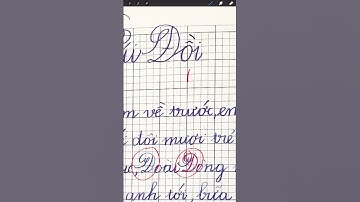 úi Đồi
m về trước, em
đôi mươi trẻ
Đoài Đông
anh tới, bừa